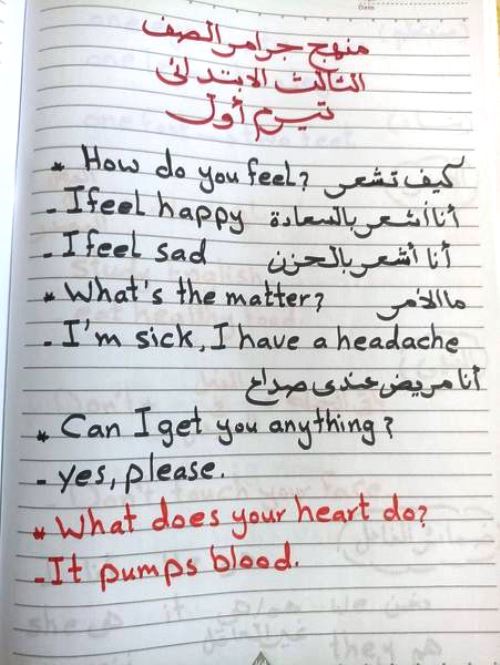 منهج جرامر الصف
الثالث الابتدائى
تيرم أول
* How do you feel? كيف تشعر
- I feel happy أنا أشعر بالسعادة
- I feel sad أنا أشعر بالحزن
* What's the matter? ما الأمر
- I'm sick, I have a headache
أنا مريض عندى صداع
* Can I get you anything?
- yes, please.
* What does your heart do?
- It pumps blood.